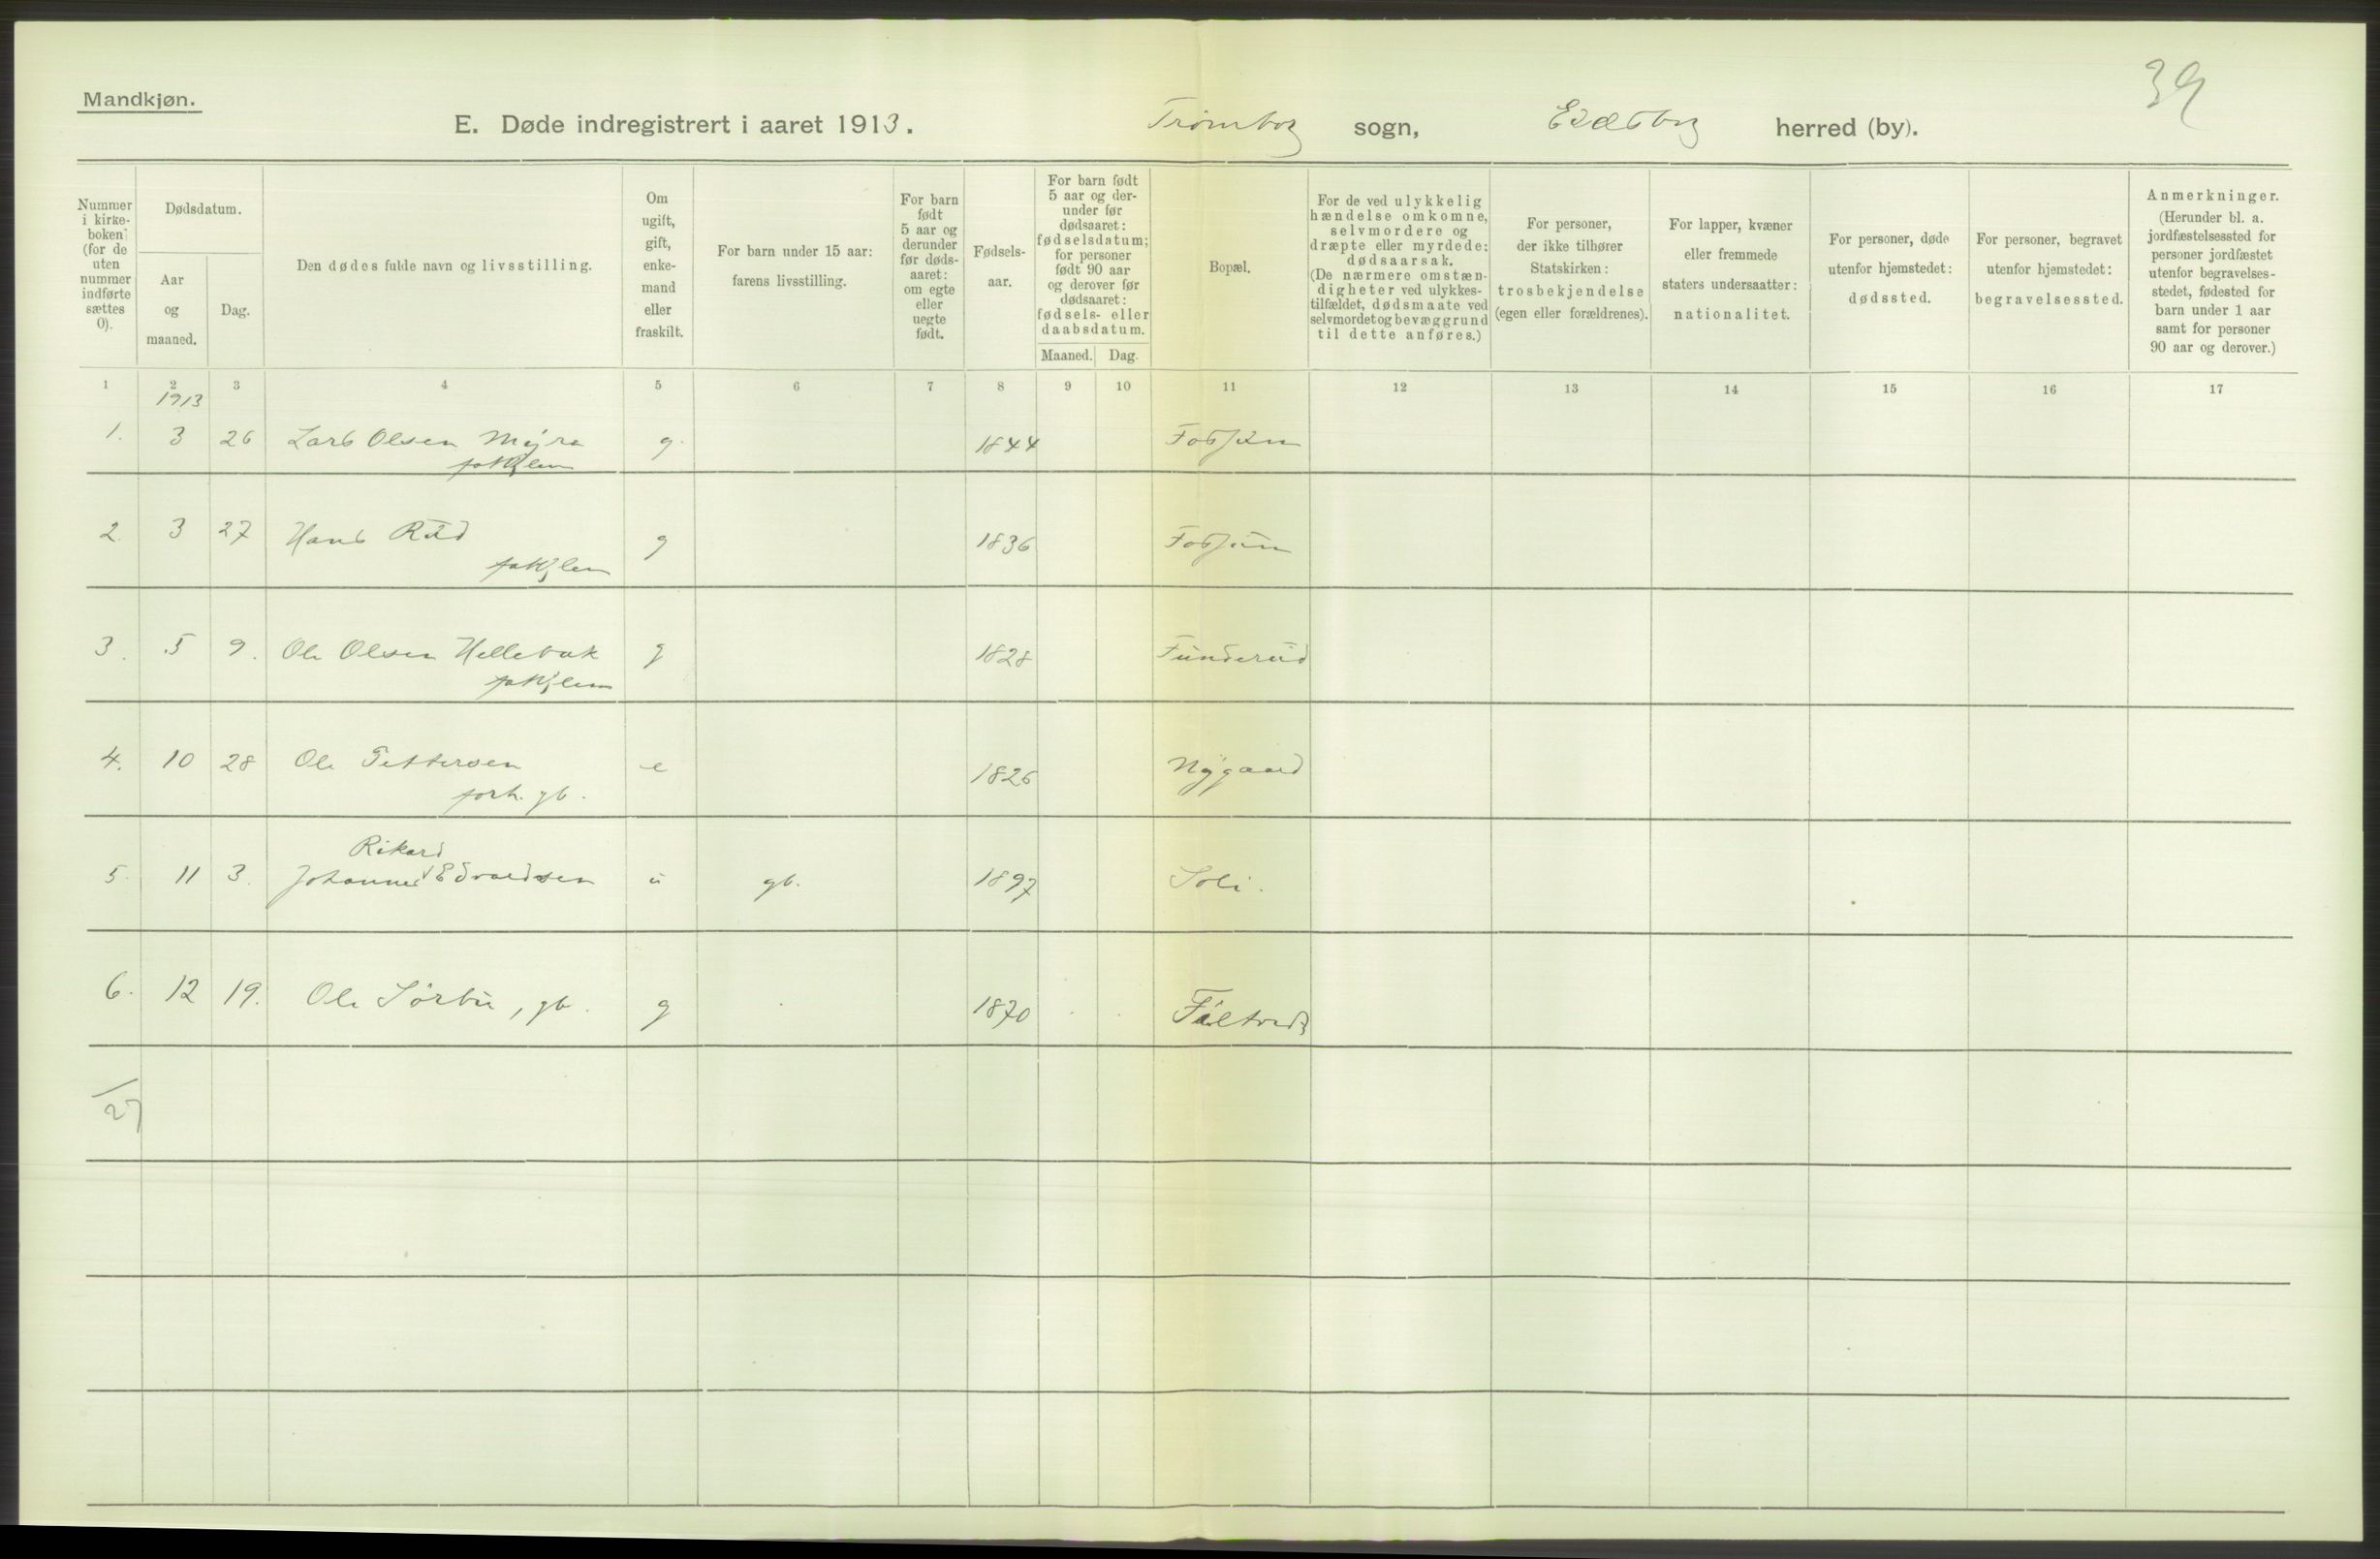 Mandkjøn.
39
E. Døde indregistrert i aaret 1913.
Trømborg sogn, Eidsberg herred (by).
Nummer i kirke-
boken
(for de
uten
nummer
indførte
sættes
0).
Dødsdatum.
Aar
og
maaned.
Dag.
Den dødes fulde navn og livsstilling.
Om
ugift,
gift,
enke-
mand
eller
fraskilt.
For barn under 15 aar:
farens livsstilling.
For barn
født
5 aar og
derunder
før døds-
aaret:
om egte
eller
uegte
født.
Fødsels-
aar.
For barn født
5 aar og der-
under før
dødsaaret:
fødselsdatum;
for personer
født 90 aar
og derover før
dødsaaret:
fødsels- eller
daabsdatum.
Maaned. Dag.
Bopæl.
For de ved ulykkelig
hændelse omkomne,
selvmordere og
dræpte eller myrdede:
dødsaarsak.
(De nærmere omstæn-
digheter ved ulykkes-
tilfældet, dødsmaate ved
selvmordet og bevæggrund
til dette anføres.)
For personer,
der ikke tilhører
Statskirken:
trosbekjendelse
(egen eller forældrenes).
For lapper, kvæner
eller fremmede
staters undersaatter:
nationalitet.
For personer, døde
utenfor hjemstedet:
dødssted.
For personer, begravet
utenfor hjemstedet:
begravelsessted.
Anmerkninger.
(Herunder bl. a.
jordfæstelsessted for
personer jordfæstet
utenfor begravelses-
stedet, fødested for
barn under 1 aar
samt for personer
90 aar og derover.)
1 2 3 4 5 6 7 8 9 10 11 12 13 14 15 16 17
1913
1. 3 26 Lars Olsen Myra g. 1844 Fossum
fattiglem
2. 3 27 Hans Rud g 1836 Fossum
fattiglem
3. 5 9. Ole Olsen Hellebæk g 1828 Funderud
fattiglem
4. 10 28 Ole Pettersen e 1826 Nygaard
forh. gb.
Rikard
5. 11 3. Johannes Edvardsen u gb. 1897 Soli.
6. 12 19. Ole Sørby, gb. g 1870
27